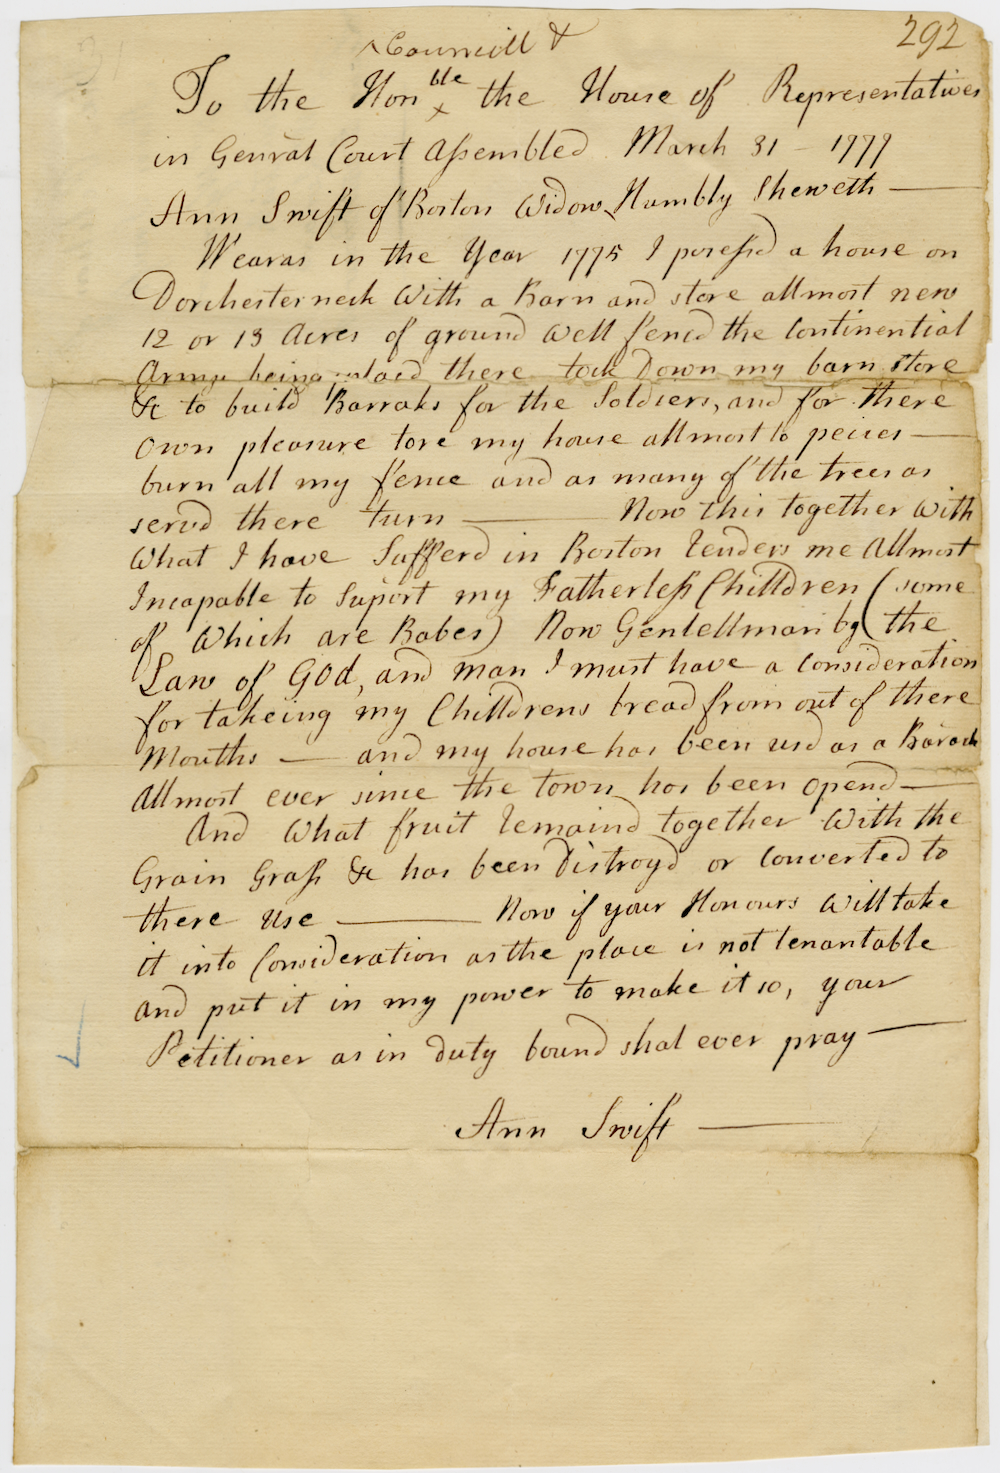 292
Councill &
To the Honble the House of Representatives
in Genral Court Assembled March 31 - 1777
Ann Swift of Boston Widow Humbly Sheweth —
Wearas in the Year 1775 I posessd a house on
Dorchester neck With a Barn and store allmost new
12 or 13 Acres of ground well fencd the Continential
Army being placd there took Down my barn store
&c to build Barraks for the Soldiers, and for there
own pleasure tore my house allmost to peices —
burn all my fence and as many of the trees as
servd there turn — Now this together with
What I have Sufferd in Boston renders me Allmost
Incapable to Suport my Fatherless Chilldren (some
of Which are Babes) Now Gentellman by the
Law of GOd, and man I must have a consideration
for takeing my Chilldrens bread from out of there
Mouths — and my house has been usd as a Barack
Allmost ever since the town has been opend —
And What fruit remaind together With the
Grain Grass &c has been Distroyd or Converted to
there Use — Now if your Honours Will take
it into Consideration as the place is not tenantable
and put it in my power to make it so, your
Petitioner as in duty bound shal ever pray —
Ann Swift —